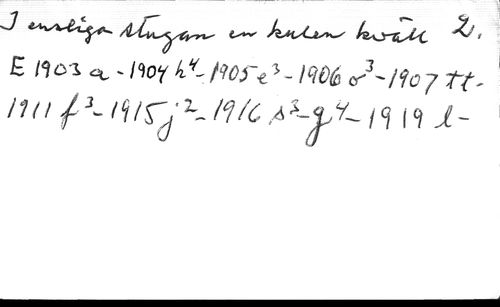 I ensliga stugan en kulen kväll 2.
E 1903 a - 1904 h⁴ - 1905 e³ - 1906 o³ - 1907 tt -
1911 f³ - 1915 j² - 1916 s³ - g⁴ - 1919 l -